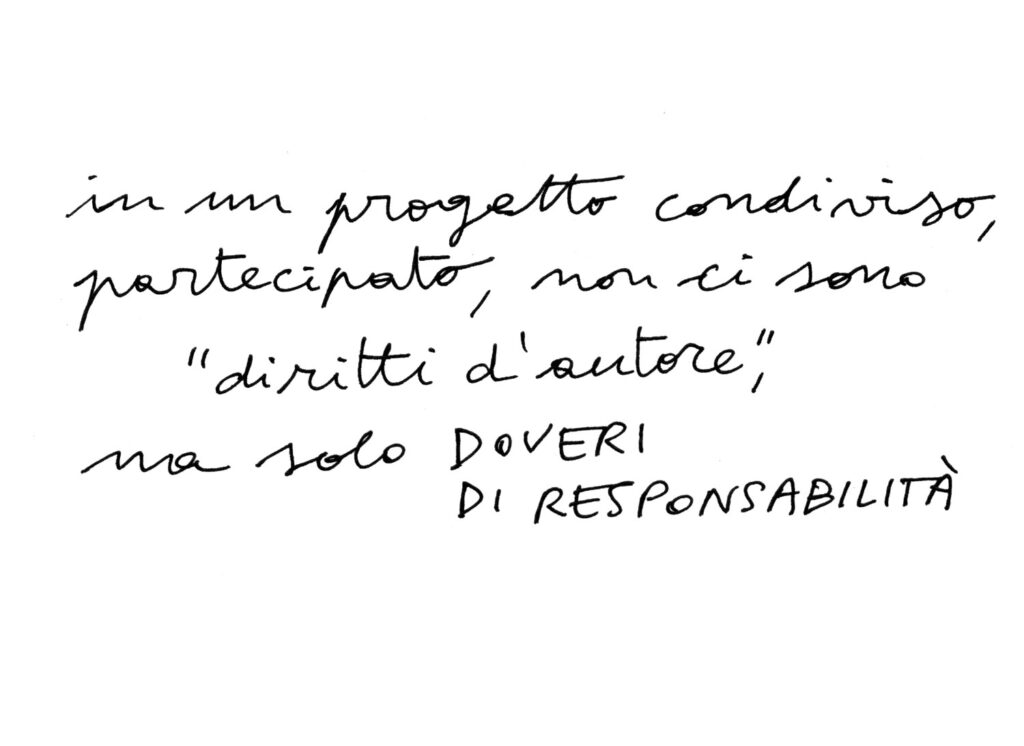 in un progetto condiviso,
partecipato, non ci sono
"diritti d'autore",
ma solo DOVERI
DI RESPONSABILITÀ